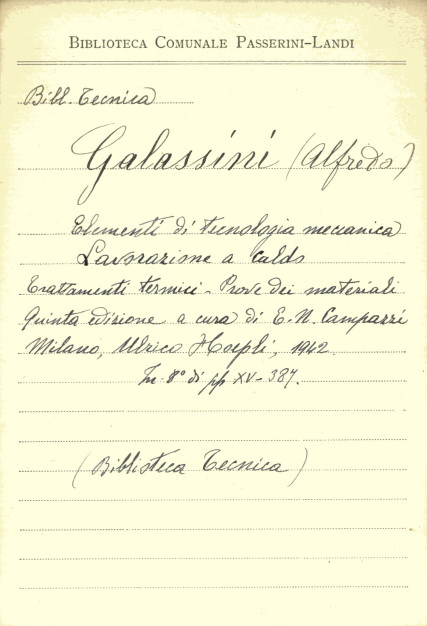 BIBLIOTECA COMUNALE PASSERINI-LANDI
Bibl. Tecnica
Galassini (Alfredo)
Elementi di tecnologia meccanica
Lavorazione a caldo
Trattamenti termici - Prove dei materiali
Quinta edizione a cura di E. N. Campazzi
Milano, Ulrico Hoepli, 1942
In-8º di pp XV-387.
(Biblioteca Tecnica)